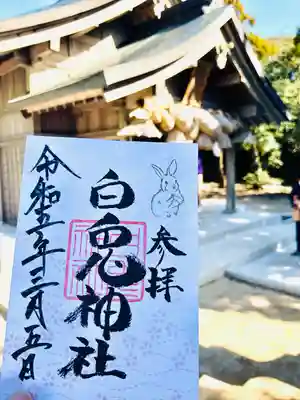 参拝
白兎神社
令和五年三月五日